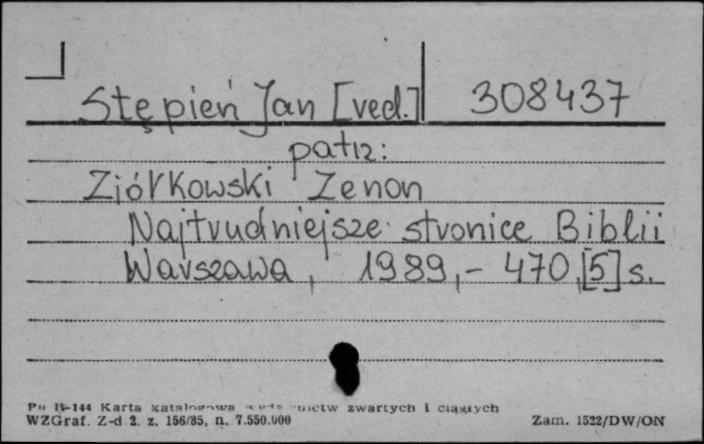 Stępień Jan [red.] 308437
patrz:
Ziółkowski Zenon
Najtrudniejsze stronice Biblii
Warszawa, 1989,- 470,[5] s.
Pu B-144 Karta katalogowa wydawnictw zwartych i ciągłych
WZGraf. Z-d 2. z. 156/85, n. 7.550.000 Zam. 1522/DW/ON